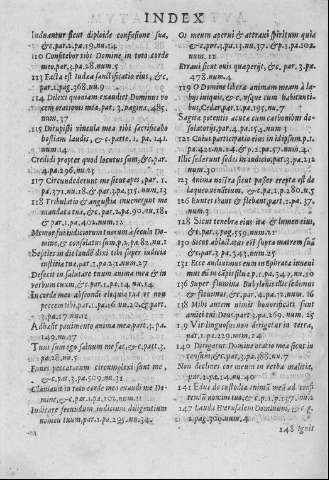 INDEX
Induantur sicut diploide confusione sua,
&c. par. 1. pa. 19. nu. 14
110 Confitebor tibi Domine in toto corde
meo. par. 3. pa. 28. num. 5
113 Facta est Iudea sanctificatio eius, &c.
par. 1. pag. 368. nu. 9
114 Dilexi quoniam exaudiet Dominus vo
cem orationis mea. par. 3. pagina. 485.
num. 37
115 Dirupisti vincula mea tibi sacrificabo
hostiam laudis, &c. parte. 1. pa. 141.
num. 14
Credidi propter quod locutus sum, &c. par.
4. pa. 296. nu. 25
117 Circundederunt me sicut apes, par. 1.
pa. 371. nu. 18. & par. 3. pa. 315. num. 13
118 Tribulatio & angustia inuenerunt me
mandata tua, &c. par. 2. pa. 90. nu. 18.
& par. 1. pa. 402. num. 12
Memor fui iudiciorum tuorum à seculo Do-
mine, & consolatus sum, p. 3. pa. 82. nu. 1
Septies in die laudē dixi tibi super iudicia
iustitiæ tuæ. par. 2. pa. 231. num. 27
Defecit in salutare tuum anima mea & in
verbum tuum, &c. par. 1. pa. 14. nu. 14
In corde meo abscondi eloquia tua vt non
peccem tibi. par. 1. pa. 16. nu. 22. & par.
3. pa. 17. nu. 12
Adhæsit pauimento anima mea. part. 3. pa.
149. nu. 17
Tuus sum ego saluum me fac, &c. part. 3.
pa. 28. nu. 5
Funes peccatorum circumplexi sunt me,
&c. par. 3. pa. 509. nu. 31
Clamaui in toto corde meo exaudi me Do-
mine, &c. par. 1. pa. 102. num. 11
Iudicate secundum iudicium diligentium
nomen tuum. par. 1. pa. 295. nu. 34.
Os meum aperui & attraxi spiritum quia
&c. par. 1. pa. 13. nu. 37. & p. 1. pa. 102.
num. 12
Erraui sicut ouis quæ perijt, &c. par. 3. pa.
478. num. 4
119 O Domine libera animam meam à la-
bijs iniquis, &c. vsque cum habitanti-
bus, Cedar. part. 1. pa. 195. nu. 7
Sagittæ potentis acutæ cum carbonibus de-
solatorijs, par. 4. pa. 15. 4. num. 5
121 Cuius participatio eius in idipsum. p. 1.
pa. 421. nu. 14. & p. 2. pa. 57. num. 4.
Illic sederunt sedes in iudicio. part. 3. pa. 212
num. 30
123 anima nostra sicut passer erepta est de
laqueo venantium, &c. pa. 1. pa. 280. nu. 5
126 Euntes ibant & flebant. part. 2. pa. 37.
num. 9
128 Sicut tenebræ eius ita & lumen eius,
&c. part. 3. pa. 559. num. 31
130 Sicut ablactatus est supra matrem suā
&c. par. 3. pa. 543. num. 25
131 Ecce audiuimus eam in Ephrata inueni
mus eā in cāpis siluæ. p. 1. pa. 342. nu. 20
136 Super flumina Babylonis illic sedimus
& fleuimus, &c. par. 4. pa. 111. num. 26
138 Mihi autem nimis honorificati sunt
amici tui Deus. part. 3. pa. 269. num. 25
119 Vir linguosus non dirigetur in terra,
par. 1. pa. 229. num. 24
140 Dirigatur Domine oratio mea sicut in
censum, &c. par. 3. pa. 388. nu. 7
Non declines cor meum in verba malitiæ,
par. 2. pa. 14. nu. 40
141 Educ de custodia animā meā ad confi-
tendū nomini tuo, &c. p. 1. p. 137. nu. 2
147 Lauda Hierusalem Dominum, &c. p.
2. pag. 309. num. 4
148 Ignis